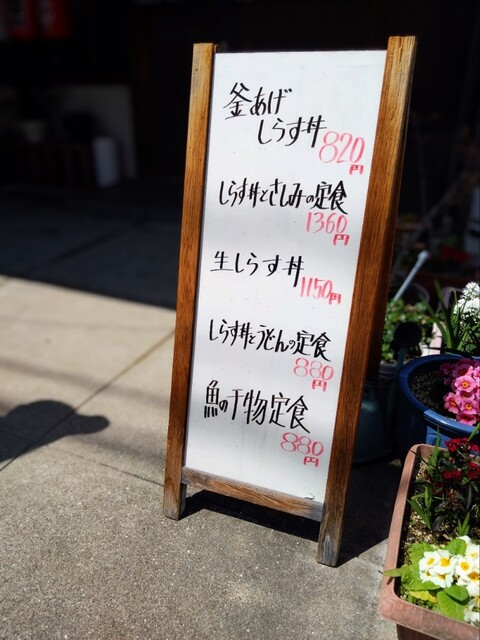 釜あげ
しらす丼
820円
しらす丼とさしみの定食
1360円
生しらす丼
1150円
しらす丼とうどんの定食
880円
魚の干物定食
880円